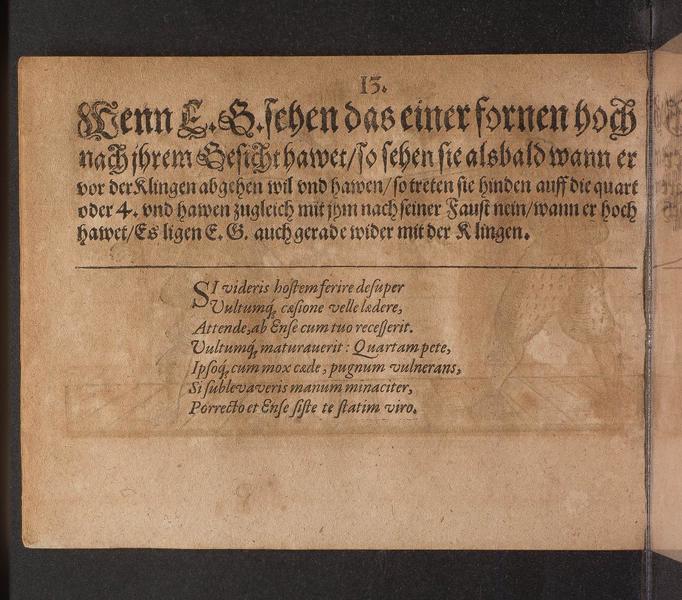 13.
Wenn E. G. sehen das einer fornen hoch
nach jhrem Gesicht hawet/ so sehen sie alsbald wann er
vor der Klingen abgehen wil vnd hawen/ so treten sie hinden auff die quart
oder 4. vnd hawen zugleich mit jhm nach seiner Faust nein/ wann er hoch
hawet/ Es ligen E. G. auch gerade wider mit der Klingen.
SI videris hostem ferire desuper
Vultumq́; cæsione velle lædere,
Attende, ab Ense cum tuo recesserit.
Vultumq́; maturauerit: Quartam pete,
Ipsoq́; cum mox cæde, pugnum vulnerans,
Si sublevaveris manum minaciter,
Porrecto et Ense siste te statim viro.